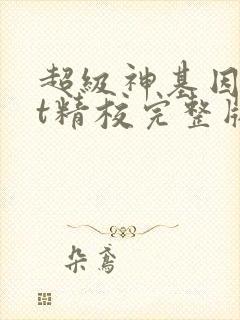 超级神基因
t精校完整版
朵鸢